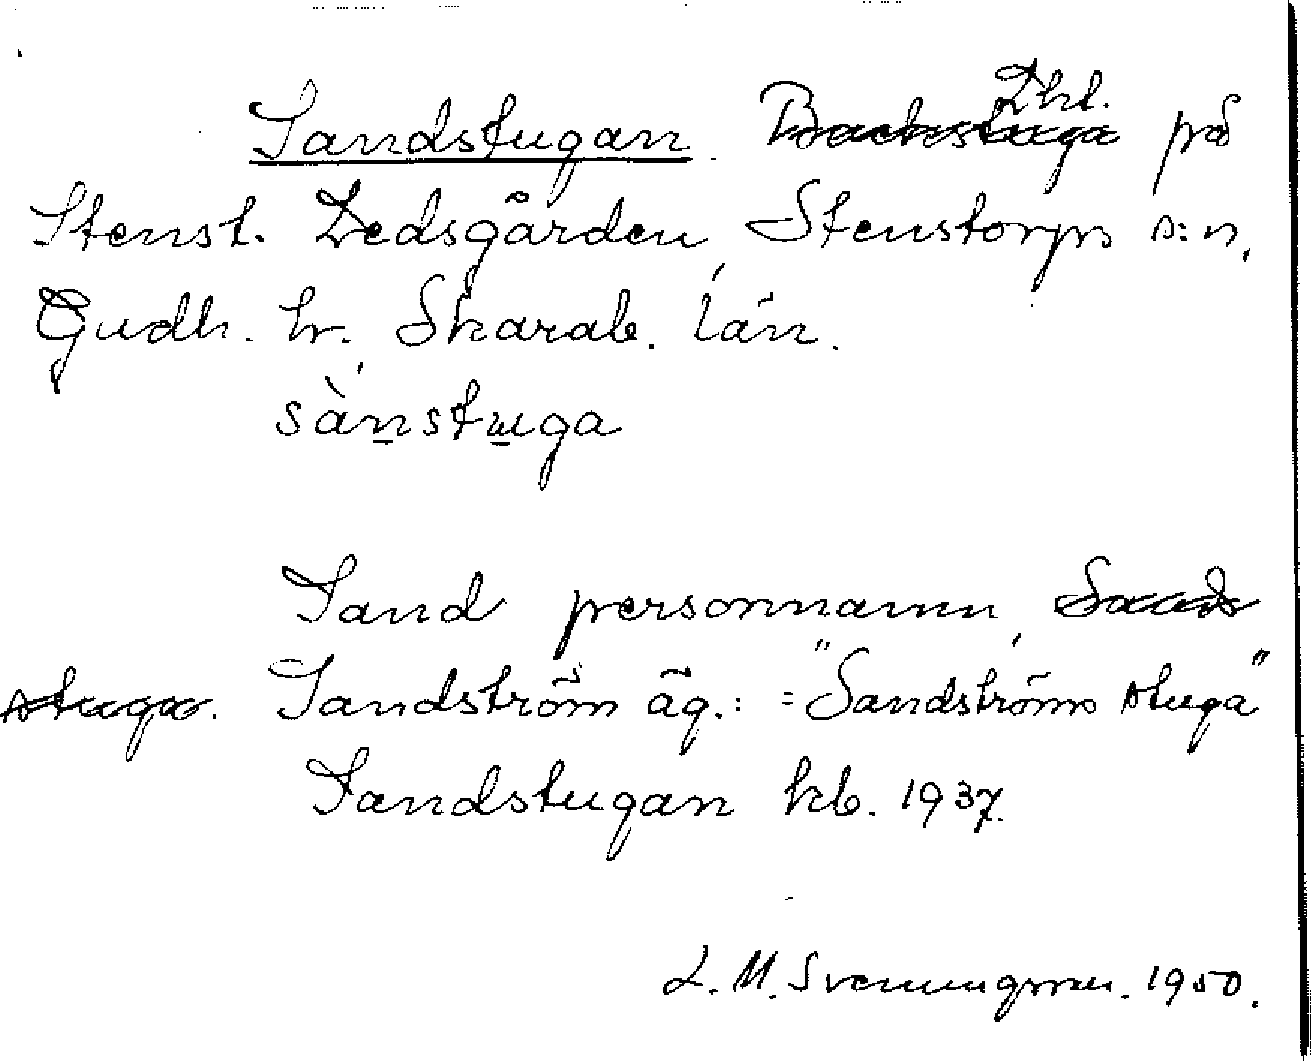 Sandstugan. Backstuga Lht. på
Stenst. Ledsgården, Stenstorps s:n,
Gudh. hr, Skarab. län.
sànstuga
Sand personnamn, Sands
stuga. Sandström äg.: = "Sandströms stuga"
Sandstugan kb. 1937.
L. M. Svenungsson. 1950.